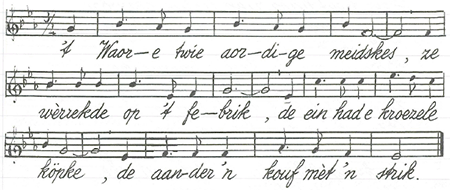 't Waor-e twie aor-di-ge meidskes, ze
wèrrekde op 't fe-brik, de ein had e kroezele
köpke, de aan-der 'n kouf mèt 'n strik.